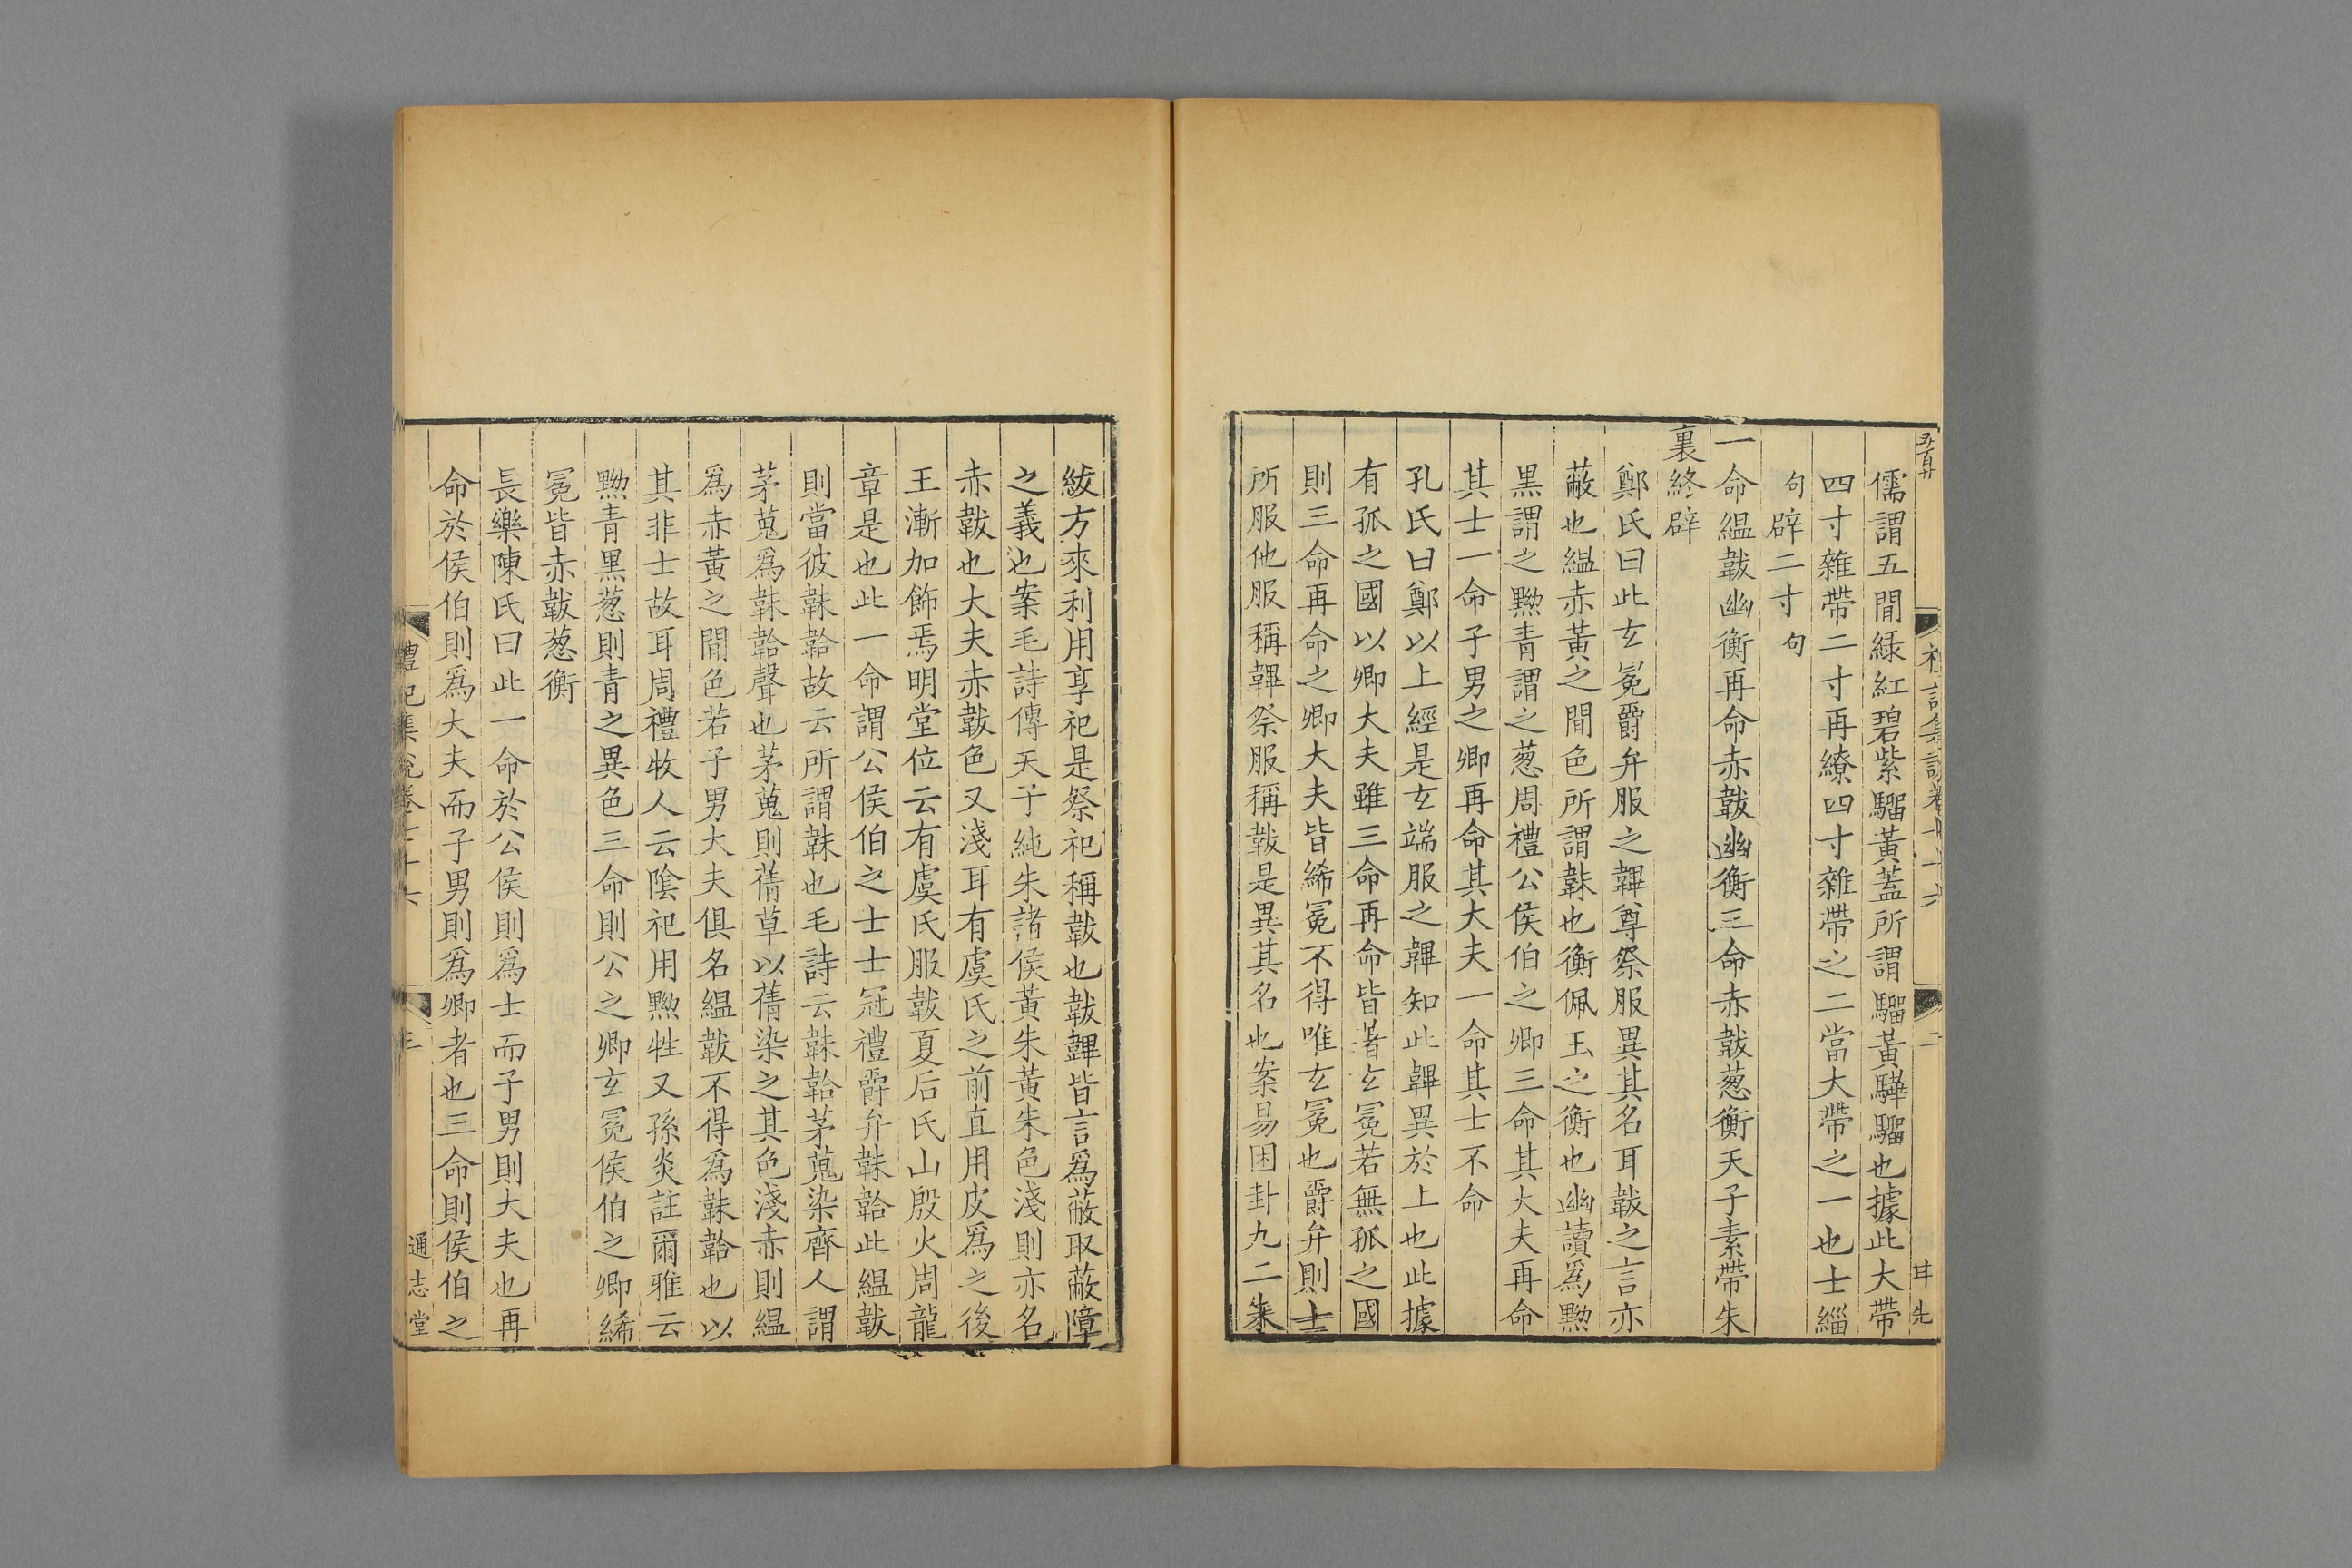 儒謂五閒綠紅碧紫騮黃蓋所謂騮黃驊騮也據此大帶
四寸雜帶二寸再繚四寸雜帶之二當大帶之一也士緇
句辟二寸句
一命縕韍幽衡再命赤韍幽衡三命赤韍葱衡天子素帶朱
裏終辟
鄭氏曰此玄冕爵弁服之韠尊祭服異其名耳韍之言亦
蔽也縕赤黃之閒色所謂韎也衡佩玉之衡也幽讀爲黝
黑謂之黝青謂之葱周禮公侯伯之卿三命其大夫再命
其士一命子男之卿再命其大夫一命其士不命
孔氏曰鄭以上經是玄端服之韠知此韠異於上也此據
有孤之國以卿大夫雖三命再命皆著玄冕若無孤之國
則三命再命之卿大夫皆絺冕不得唯玄冕也爵弁則士
所服他服稱韠祭服稱韍是異其名也案易困卦九二朱
紱方來利用享祀是祭祀稱韍也韍韠皆言爲蔽取蔽障
之義也案毛詩傳天子純朱諸侯黃朱黃朱色淺則亦名
赤韍也大夫赤韍色又淺耳有虞氏之前直用皮爲之後
王漸加飾焉明堂位云有虞氏服韍夏后氏山殷火周龍
章是也此一命謂公侯伯之士士冠禮爵弁韎韐此縕韍
則當彼韎韐故云所謂韎也毛詩云韎韐茅蒐染齊人謂
茅蒐爲韎韐聲也茅蒐則蒨草以蒨染之其色淺赤則縕
爲赤黃之閒色若子男大夫俱名縕韍不得爲韎韐也以
其非士故耳周禮牧人云陰祀用黝牲又孫炎註爾雅云
黝青黑葱則青之異色三命則公之卿玄冕侯伯之卿絺
冕皆赤韍葱衡
長樂陳氏曰此一命於公侯則爲士而子男則大夫也再
命於侯伯則爲大夫而子男則爲卿者也三命則侯伯之
禮記集說卷七十六
三
通志堂